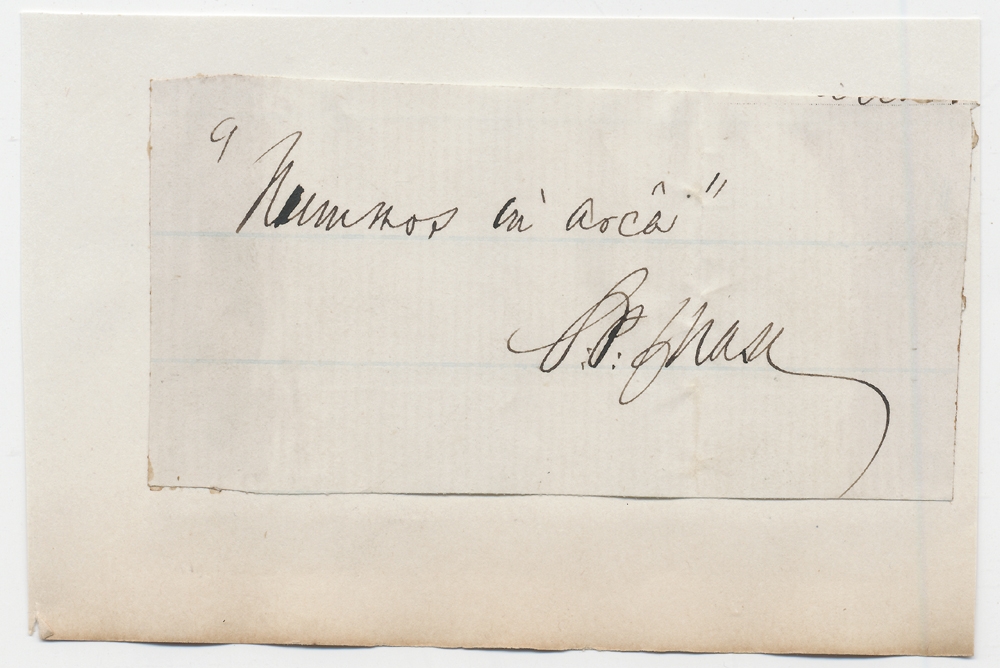 "Nummos in arcâ"
S. P. Chase